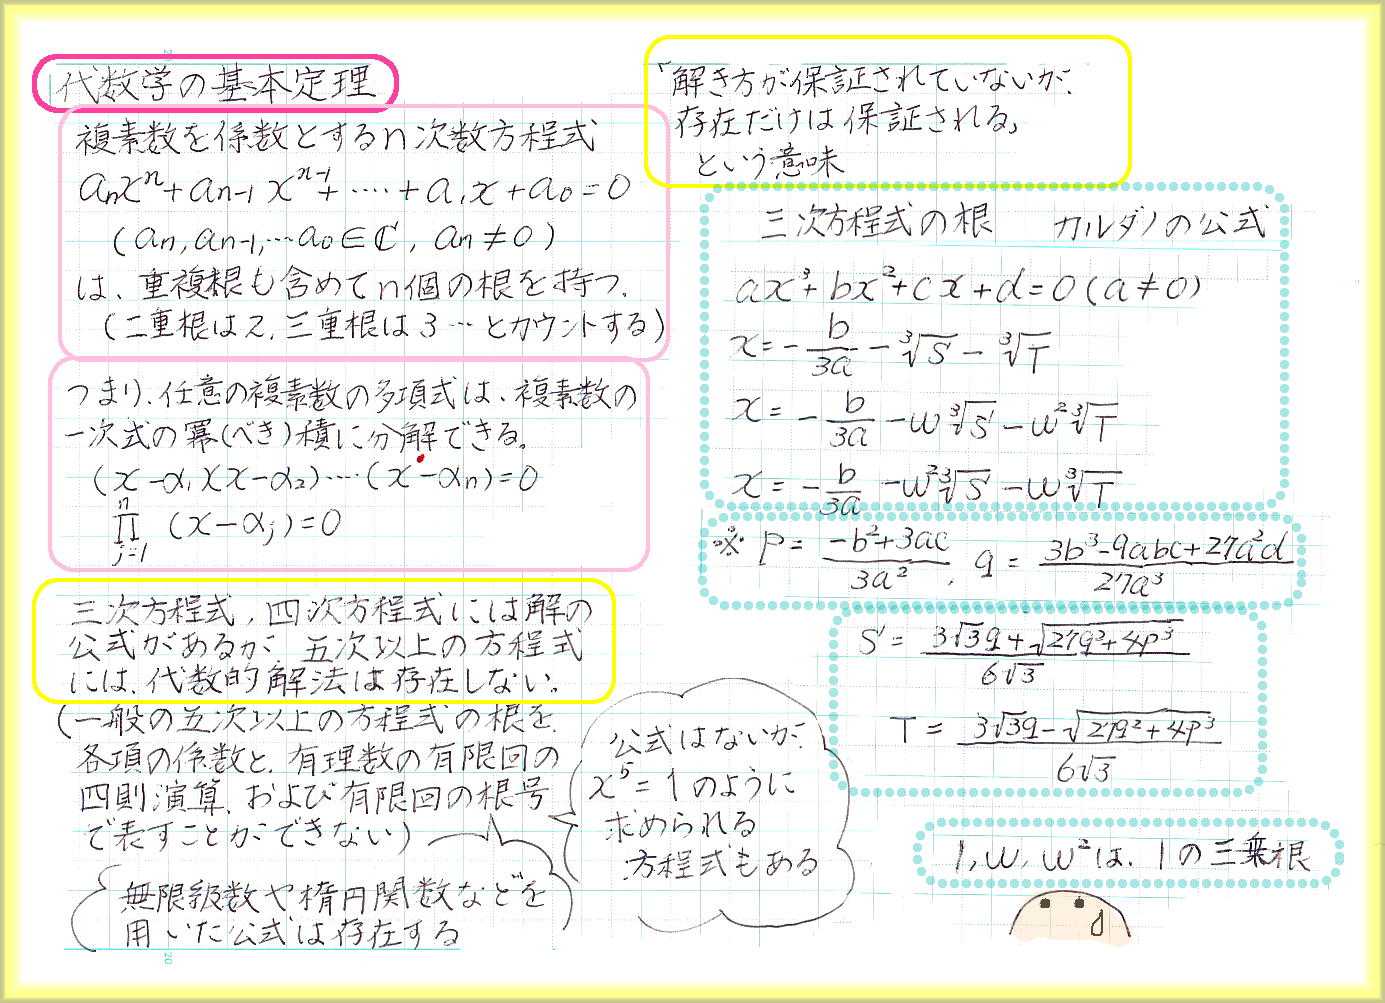 代数学の基本定理
複素数を係数とするn次数方程式
aₙxⁿ+aₙ₋₁xⁿ⁻¹+‥‥+a₁x+a₀=0
(aₙ,aₙ₋₁,…a₀∈ℂ, aₙ≠0)
は、重複根も含めてn個の根を持つ.
(二重根は2,三重根は3…とカウントする)
つまり、任意の複素数の多項式は、複素数の
一次式の冪(べき)積に分解できる。
(x-α₁)(x-α₂)‥‥(x-αₙ)=0
∏ⁿⱼ₌₁ (x-αⱼ)=0
三次方程式、四次方程式には解の
公式があるが、五次以上の方程式
には、代数的解法は存在しない。
(一般の五次以上の方程式の根を、
各項の係数と、有理数の有限回の
四則演算、および有限回の根号
で表すことができない)
無限級数や楕円関数などを
用いた公式は存在する
公式はないが、
x⁵=1のように
求められる
方程式もある
「解き方が保証されていないが、
存在だけは保証される」
という意味
三次方程式の根 カルダノの公式
ax³+bx²+cx+d=0(a≠0)
x=-b/3a-³√S-³√T
x=-b/3a-ω³√S-ω²³√T
x=-b/3a-ω²³√S-ω³√T
※ P=(-b²+3ac)/3a², q=(3b³-9abc+27a²d)/27a³
S=(3√3q+√(27q²+4p³))/6√3
T=(3√3q-√(27q²+4p³))/6√3
1,ω,ω²は、1の三乗根
20